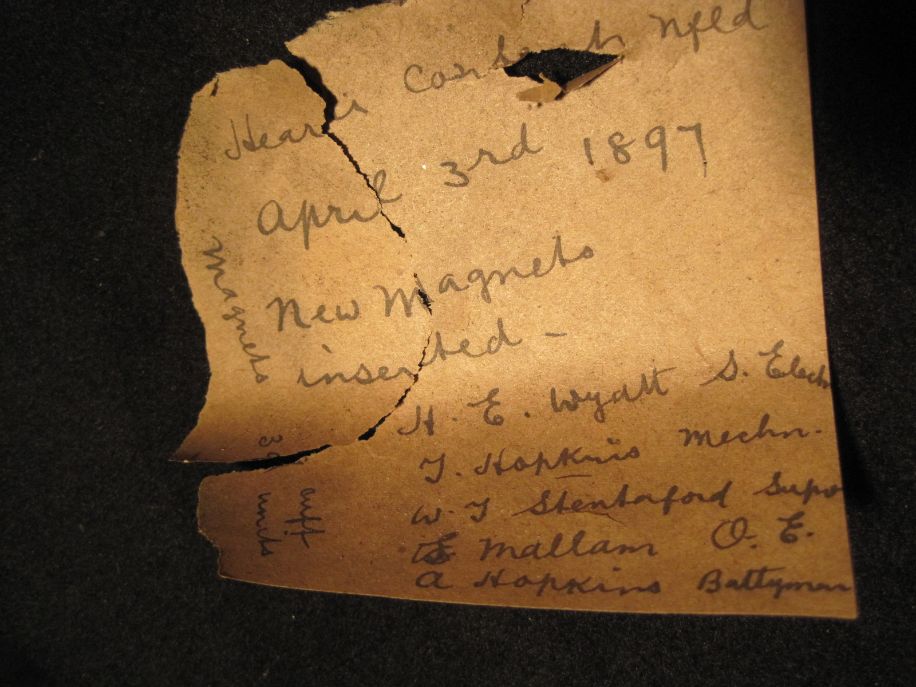 Hearts Cont nfld
April 3rd 1897
New Magnets
inserted -
H. E. Wyatt S. Elect
T. Hopkins Mechn.
W. T Stentaford Supo
E Mallam O. E.
A Hopkins Battyman
Magnets
units